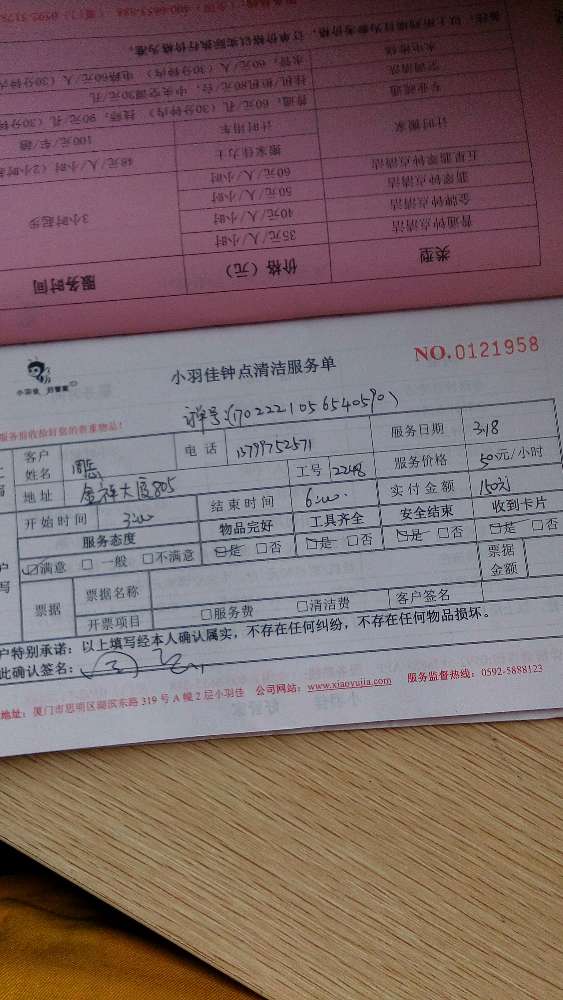 类型 价格（元） 服务时间
普通钟点清洁 35元/人/小时 3小时起步
金牌钟点清洁 40元/人/小时
翡翠钟点清洁 50元/人/小时
五星翡翠钟点清洁 60元/人/小时
计时搬家 搬家佳力士 48元/人/小时（2小时起
计时用车 100元/车/趟
专业疏通 普通，60元/孔（30分钟内）
空调清洗 挂机/柜机80元/台，中央空调30元/孔
水电维修 水管，60元/人（30分钟内） 电路60元/人（30分钟内
备注：以上所列项目为参考价格，订单价格以实际执行价格为准。
小羽佳 好管家
小羽佳钟点清洁服务单
NO.0121958
服务前收拾好您的贵重物品！
单号:(170222105654059０)
客户姓名 周 电话 13799752571 服务日期 3.18
地址 金祥大厦805 工号 2248 服务价格 50元/小时
开始时间 3:00 结束时间 6:00. 实付金额 150元
服务态度 物品完好 工具齐全 安全结束 收到卡片
☑满意 □一般 □不满意 □是 □否 □是 □否 □是 □否 □是 □否
票据 票据名称 票据金额
开票项目 □服务费 □清洁费 客户签名
户特别承诺：以上填写经本人确认属实，不存在任何纠纷，不存在任何物品损坏。
此确认签名：
地址：厦门市思明区湖滨东路319号A幢2层小羽佳 公司网站：www.xiaoyujia.com 服务监督热线：0592-5888123